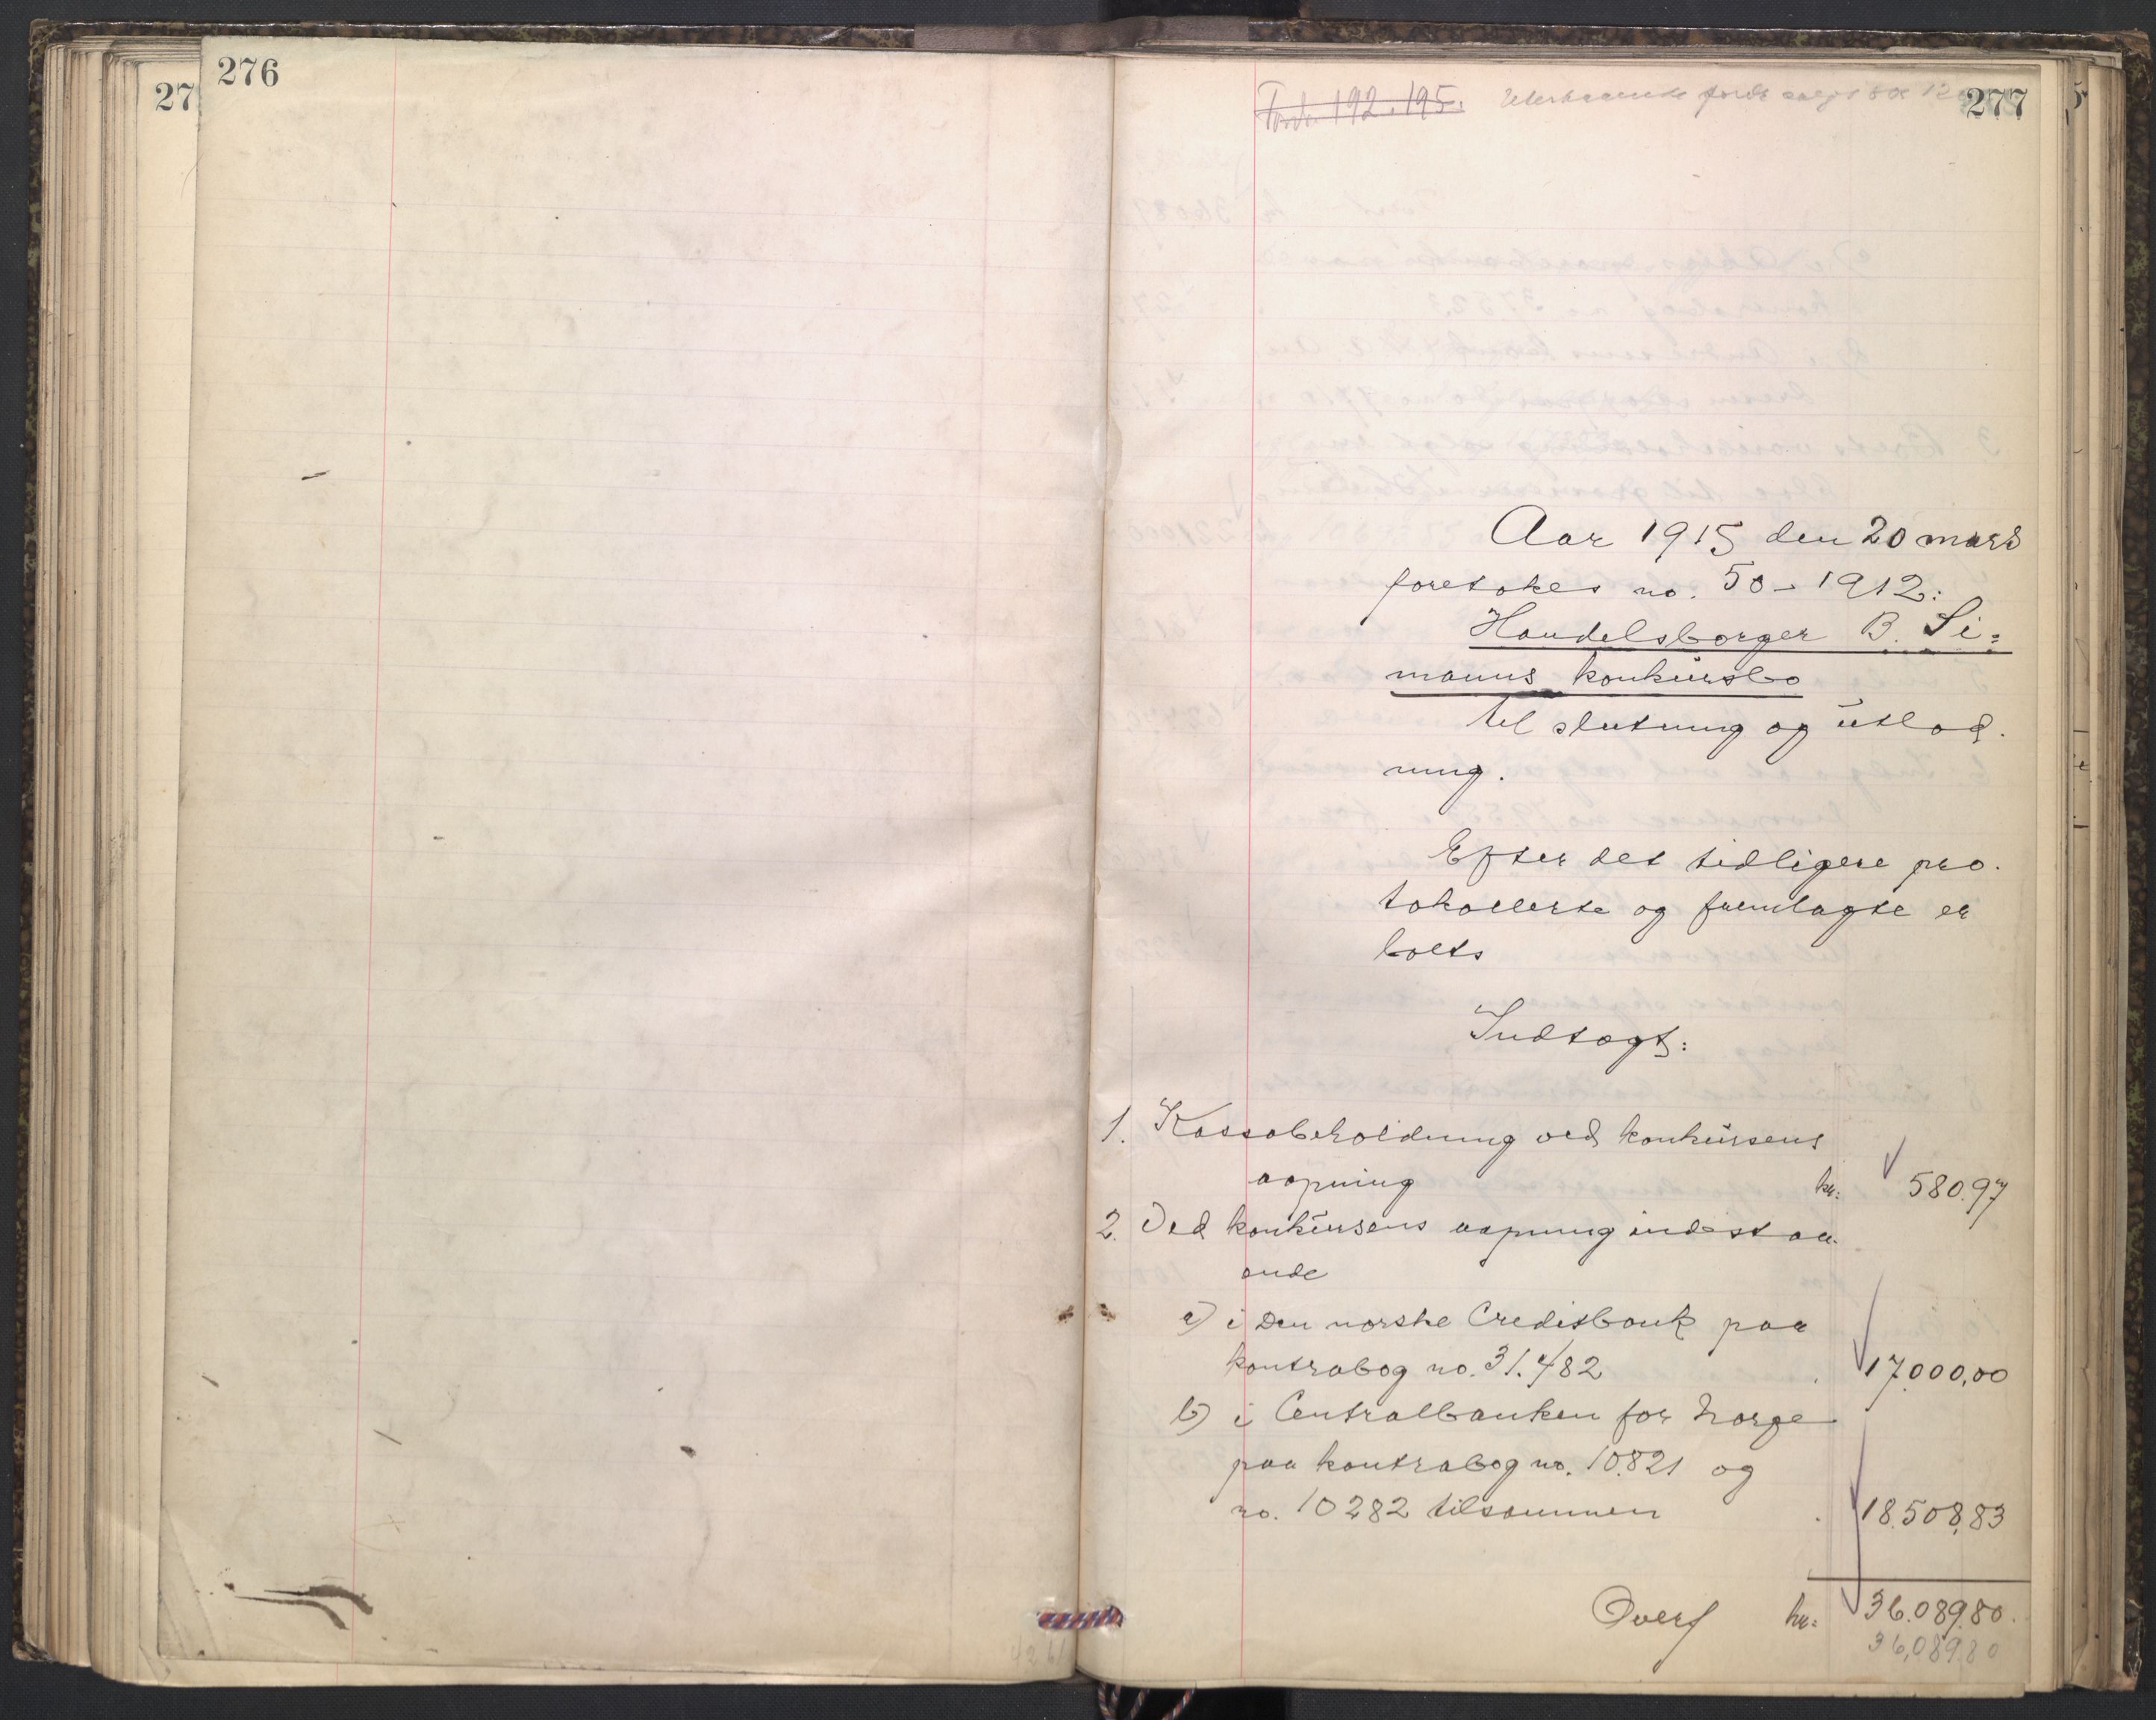 276
27
277
Ford. 192.195.
Aar 1915 den 20 mars
foretokes no. 50 - 1912:
Handelsborger B. Si=
manns konkursbo
til slutning og utlod.
ning.
Efter det tidligere pro.
tokollerte og fremlagte er
boets
Indtægt:
1. Kassabeholdning ved konkursens
aapning kr: 580.97
2. Ved konkursens aapning indestaa.
ende
a) i Den norske Creditbank paa
kontrabog no. 31.482 . 17.000,00
b) i Centralbanken for Norge
paa kontrabog no. 10.821 og
no. 10282 tilsammen . 18.508,83
Overf kr: 36.089.80.
36,089.80